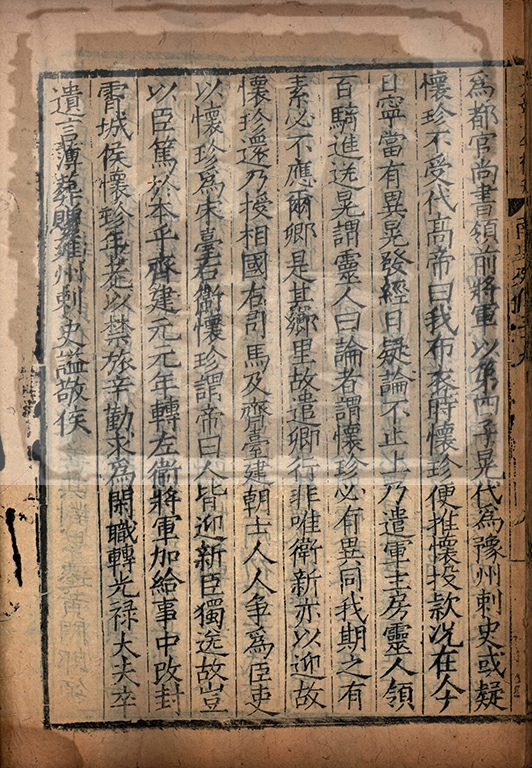 為都官尚書領前將軍以第四子晃代為豫州刺史或疑
懷珍不受代高帝曰我布衣時懷珍便推懷投款况在今
日寧當有異晃發經日疑論不止上乃遣軍主房靈人領
百騎進送晃謂靈人曰論者謂懷珍必有異同我期之有
素必不應爾卿是其鄉里故遣卿行非唯衛新亦以迎故
懷珍還乃授相國右司馬及齊臺建朝士人人争為臣吏
以懷珍為宋臺右衛懷珍謂帝曰人皆迎新臣獨送故豈
以臣篤於本乎齊建元元年轉左衛將軍加給事中改封
霄城侯懷珍年老以禁旅辛勤求為閑職轉光禄大夫卒
遺言薄葬贈雍州刺史謚敬侯